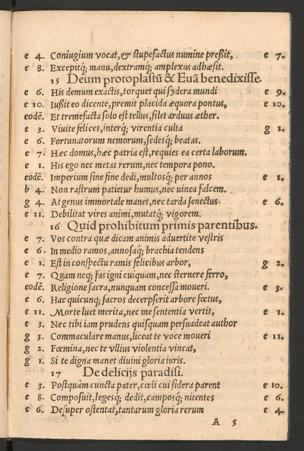 e 4. Coniugium vocat, & stupefactus numine preſsit, e 7.
e 8. Excepitq; manu, dextramq; amplexus adhæsit.
15 Deum protoplastũ & Euã benedixiſſe.
e 6. His demum exactis, torquet qui sydera mundi e 9.
e 10. Iuſsit eo dicente, premit placida æquora pontus, e 10.
eodẽ. Et tremefacta solo est tellus, silet arduus æther.
e 3. Viuite fælices, interq; virentia culta g 1.
e 6. Fortunatorum nemorum, sedesq; beatas.
e 7. Hæc domus, hæc patria est, requies ea certa laborum.
e 1. His ego nec metas rerum, nec tempora pono.
eodẽ. Imperium sine fine dedi, multosq; per annos e 1.
b 4. Non rastrum patietur humus, nec uinea falcem.
g 4. At genus immortale manet, nec tarda senectus e 6.
e 11. Debilitat vires animi, mutatq; vigorem.
16 Quid prohibitum primis parentibus.
e 7. Vos contra quæ dicam animis aduertite vestris
e 6. In medio ramos, annosaq; brachia tendens
e 1. Est in conspectu ramis felicibus arbor, g 2.
e 7. Quam neq; fas igni cuiquam, nec sternere ferro,
eodẽ. Religione sacra, nunquam conceſſa moueri. e 3.
e 6. Hac quicunq; sacros decerpserit arbore fœtus,
e 11. Morte luet merita, nec me sententia vertit, e 1.
e 3. Nec tibi iam prudens quisquam persuadeat author
g 3. Commaculare manus, liceat te voce moueri e 11.
g 2. Fœmina, nec te vllius violentia vincat,
g 1. Si te digna manet diuini gloria iuris.
17 De delicijs paradisi.
e 3. Postquàm cuncta pater, cœli cui sidera parent e 10.
e 8. Composuit, legesq; dedit, camposq; nitentes e 6.
e 6. Desuper ostentat, tantarum gloria rerum e 4.
A 5